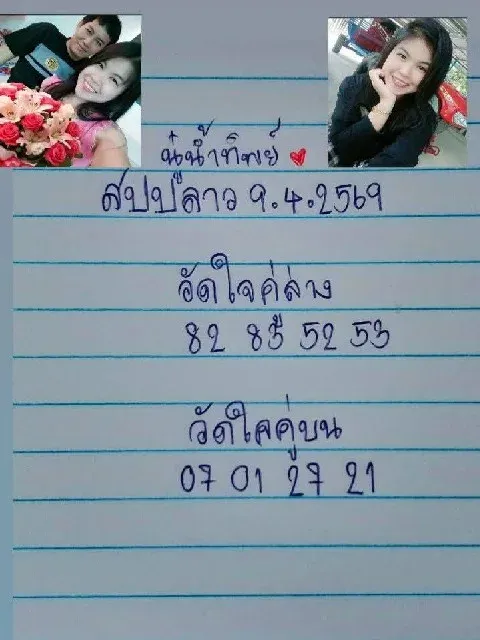 น่ำน้ำทิพย์
สปปลาว 9.4.2569
วัดใจคู่ล่าง
82 83 52 53
วัดใจคู่บน
07 01 27 21